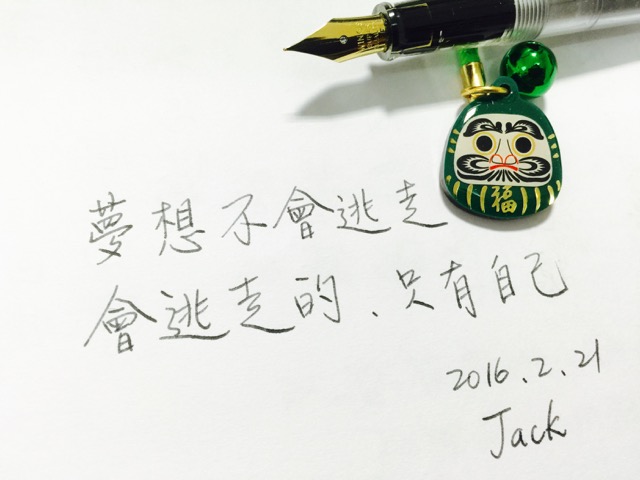 福
夢想不會逃走
會逃走的、只有自己
2016.2.21
Jack